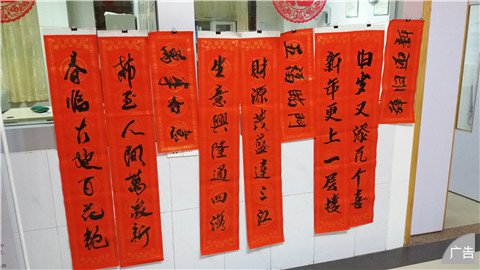 辞旧迎新
旧岁又添几个喜
新年更上一层楼
五福临门
財源茂盛達三江
生意興隆通四海
節至人間萬象新
春临大地百花艳
广告